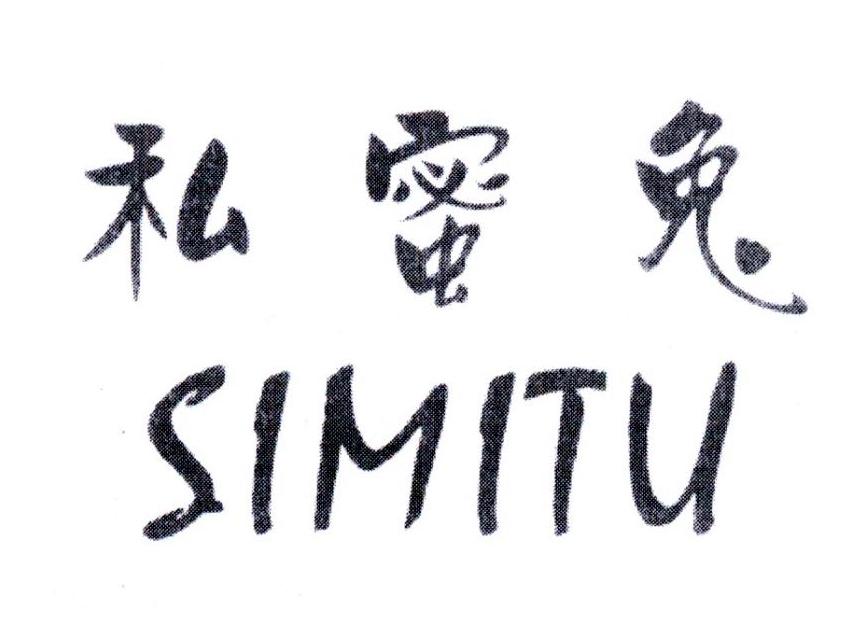 私蜜兔
SIMITU